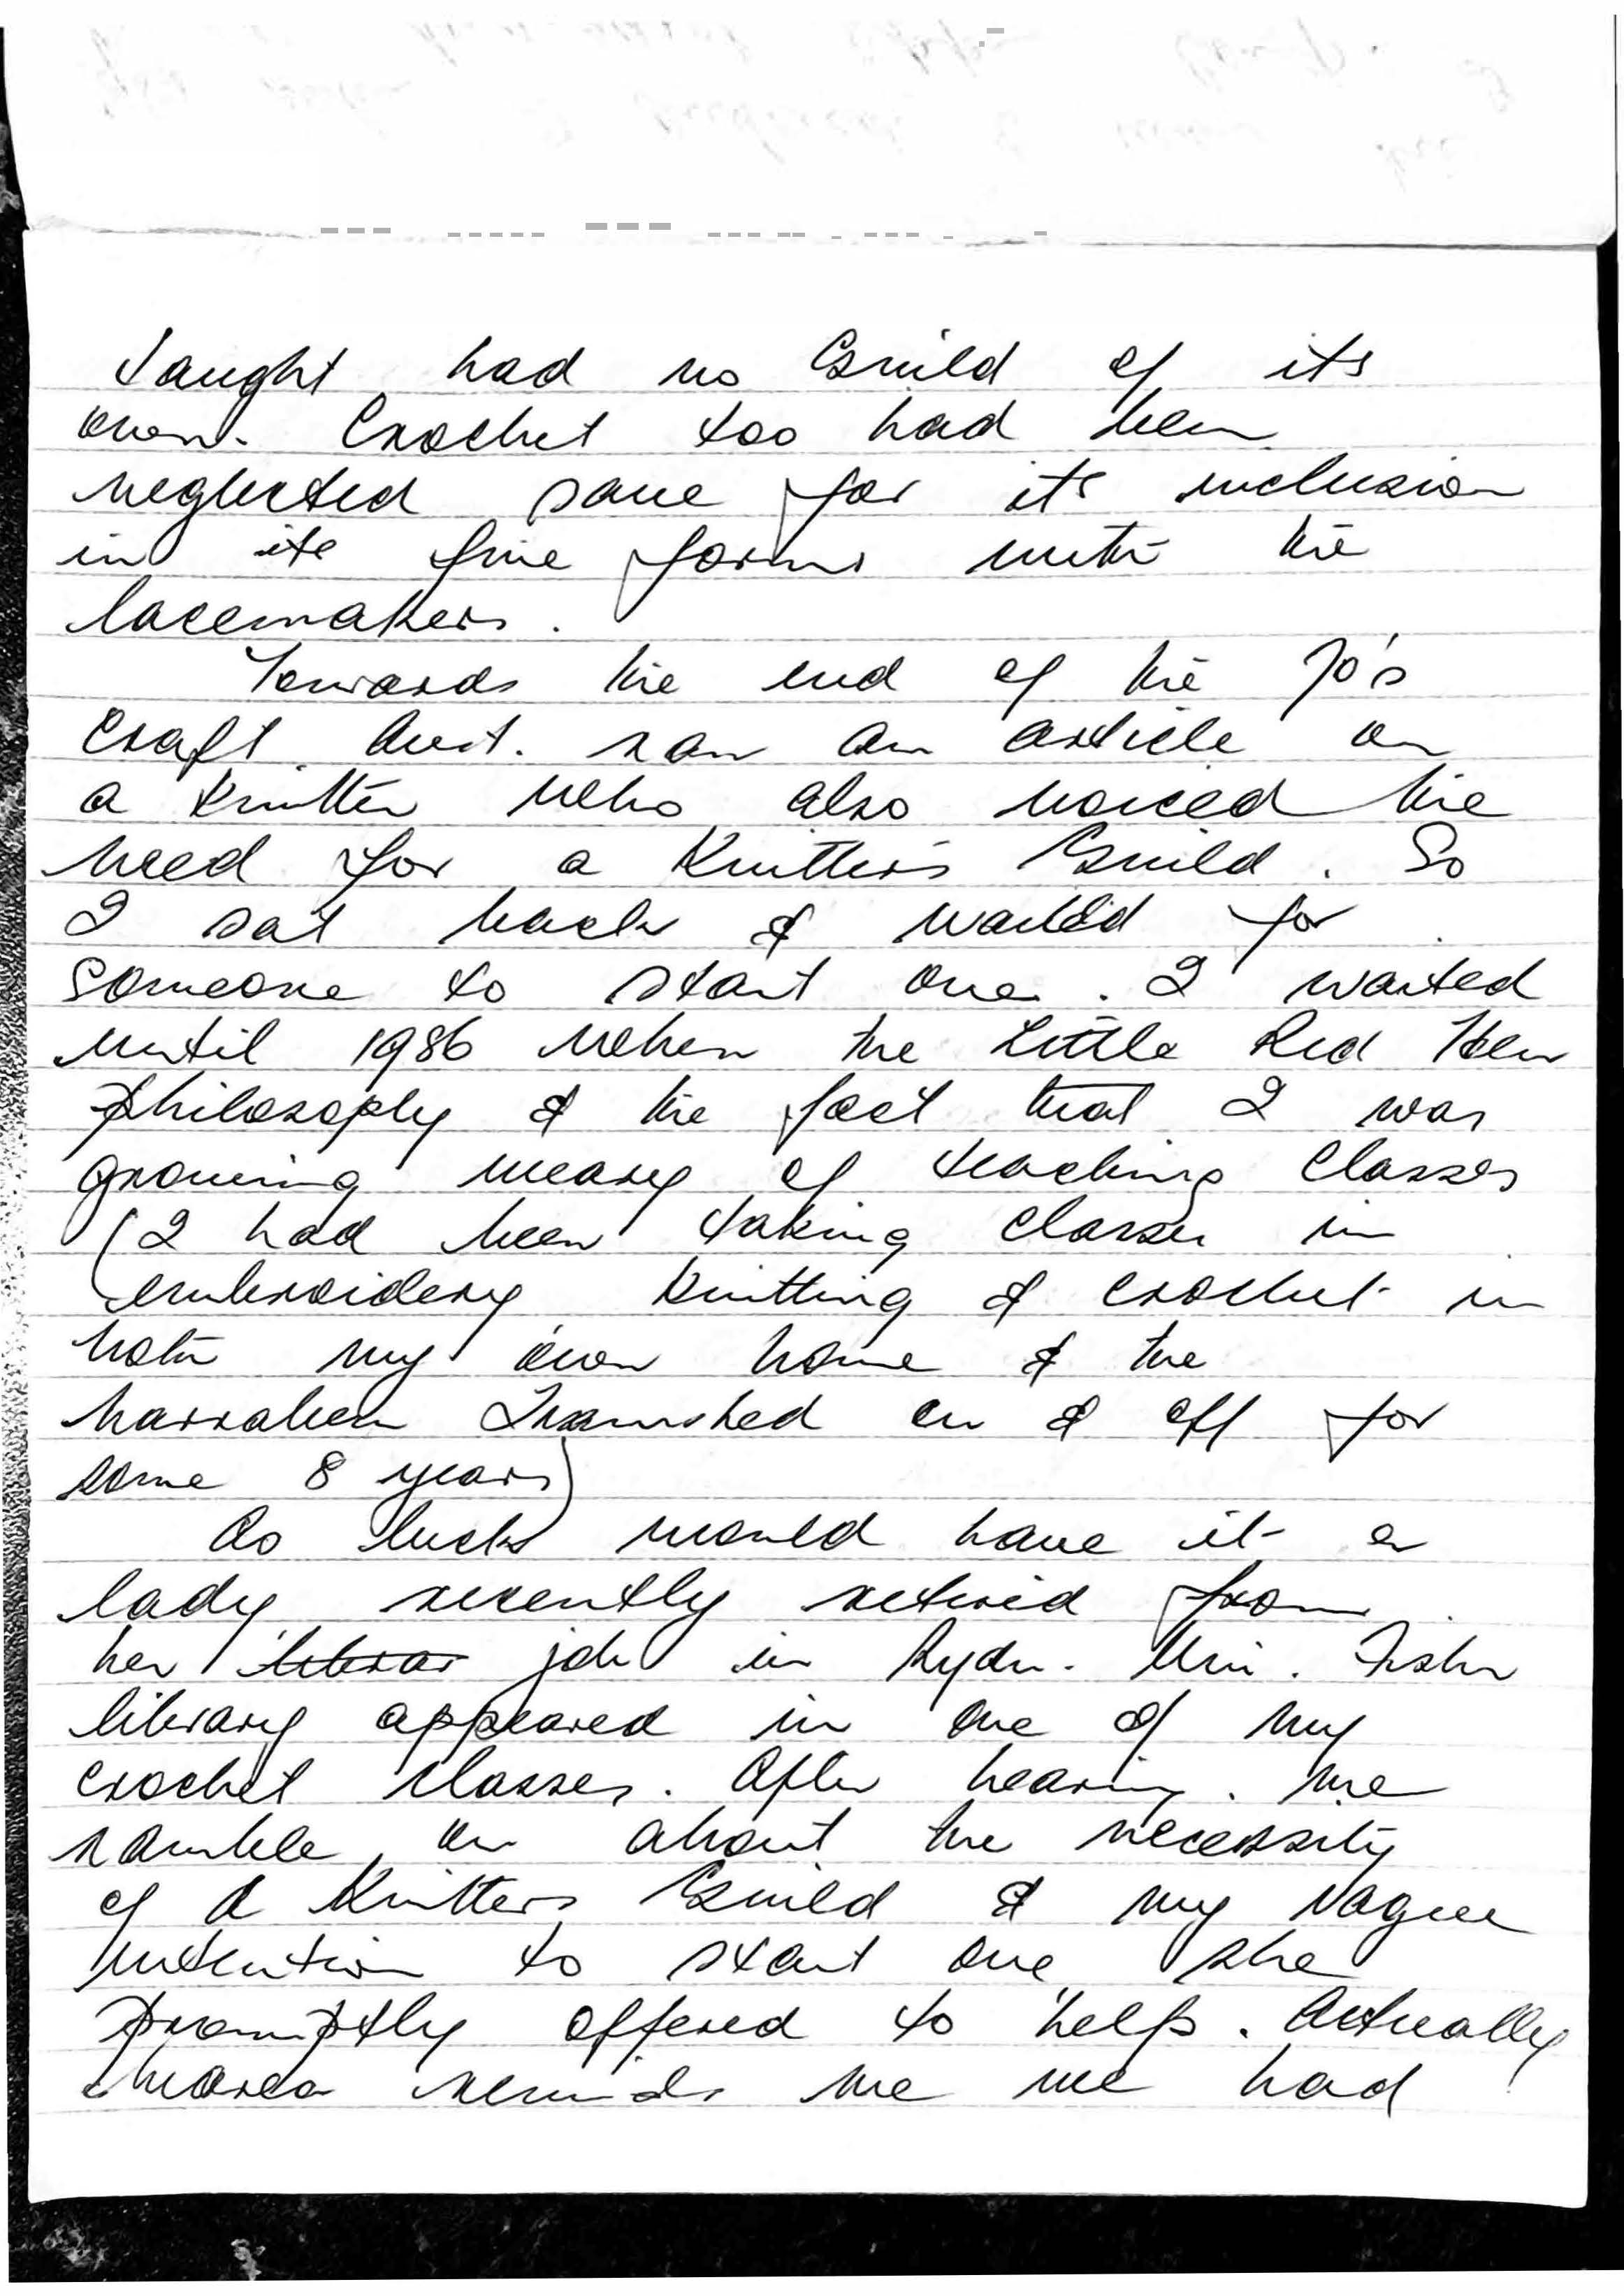 taught had no Guild of its
own. Crochet too had been
neglected save for its inclusion
in its fine forms with the
lacemakers.
Towards the end of the 70's
Craft Aust. ran an article on
a Knitter who also voiced the
need for a Knitters Guild. So
I sat back & waited for
someone to start one. I waited
until 1986 when the Little Red Hen
philosophy & the fact that I was
growing weary of teaching Classes
(I had been taking classes in
embroidery Knitting & crochet in
both my own home & the
Narrabeen Tramshed on & off for
some 8 years)
As luck would have it a
lady recently retired from
her librar job in Sydn. Uni. Fisher
library appeared in one of my
crochet classes. After hearing me
ramble on about the necessity
of a Knitters Guild & my vague
intention to start one she
promptly offered to help. Actually
reminds me we had